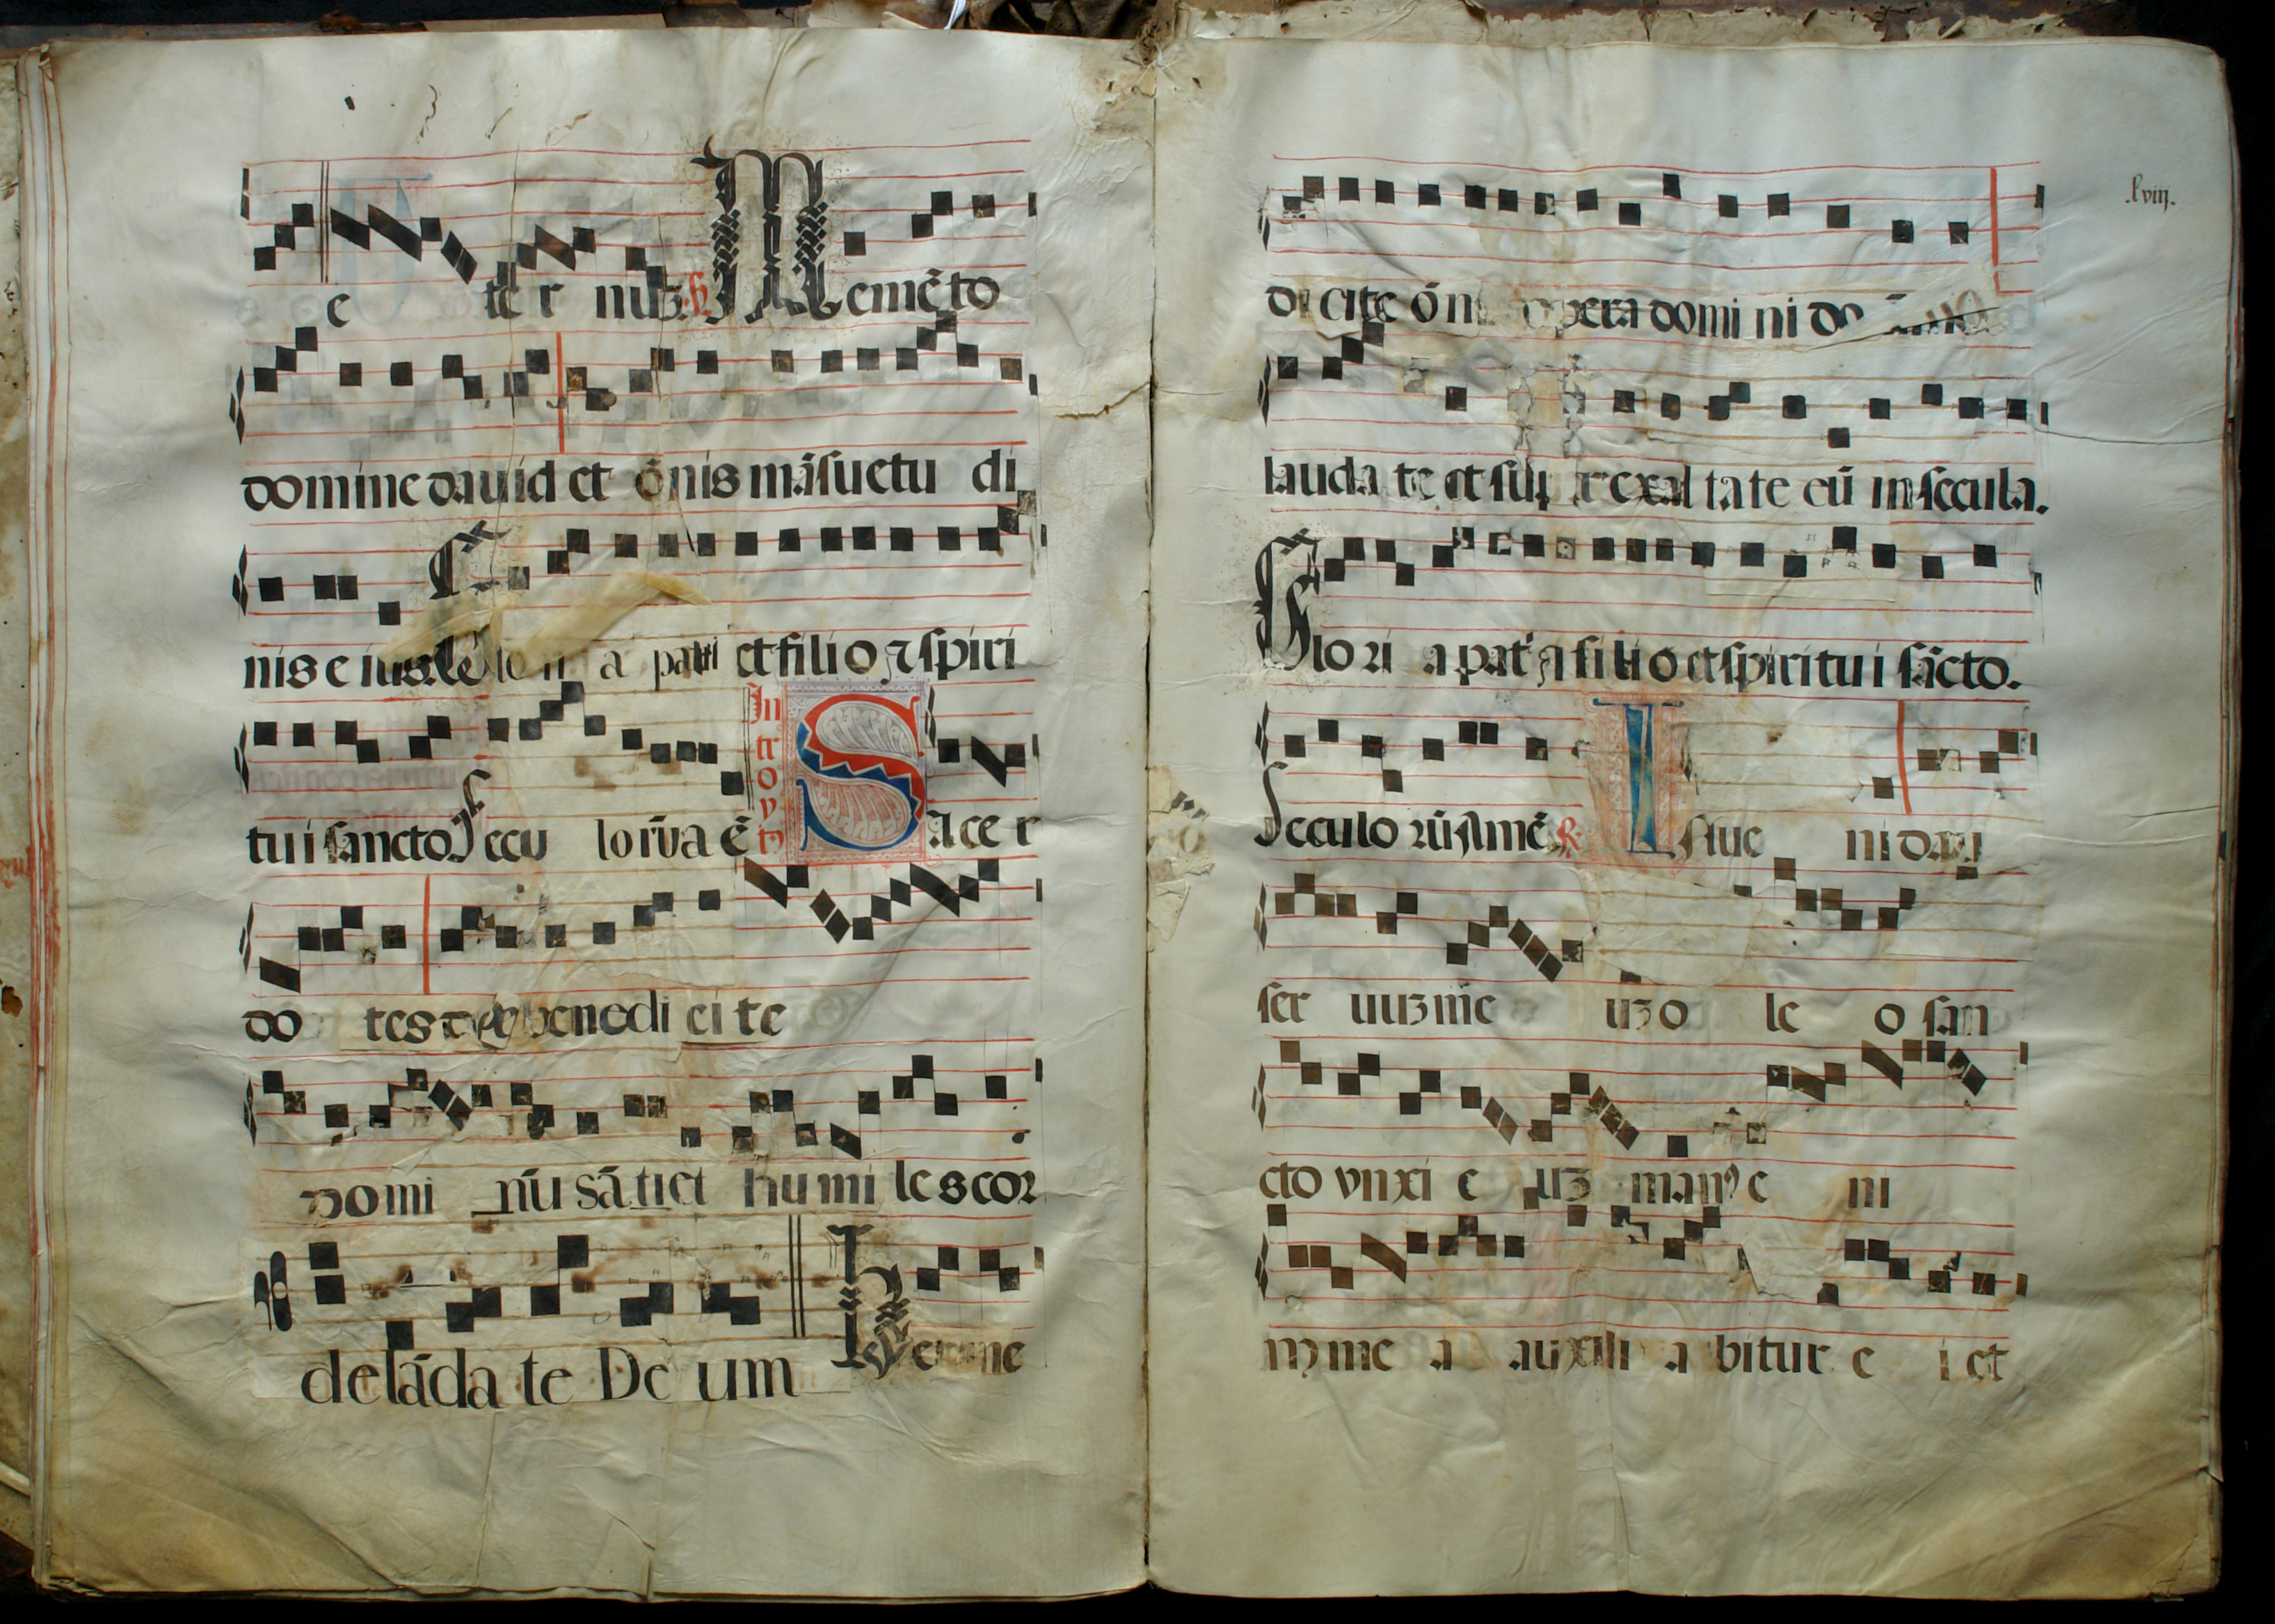 e ter nuȝ. Memēto
domine dauid et ōnis māsuetu di
nis eius. lo ri a patri et filio ⁊ spiri
tui sancto. Secu lorūa ē
Introyt9 Sacer
do tes benedi ci te
domi nū sātiet humiles cor
de lāda te De um Benne
lviij.
di cite ōn opera domi ni do
lauda te et sup er exal ta te eū in secula.
Glori a pat ⁊ filio et spiritui sācto.
Seculo rū Amē ℟ Inue ni daui
ser uuȝ me uȝ o le o san
cto vnxi e uȝ man9 e ni
m me a auxili a bitur e i et